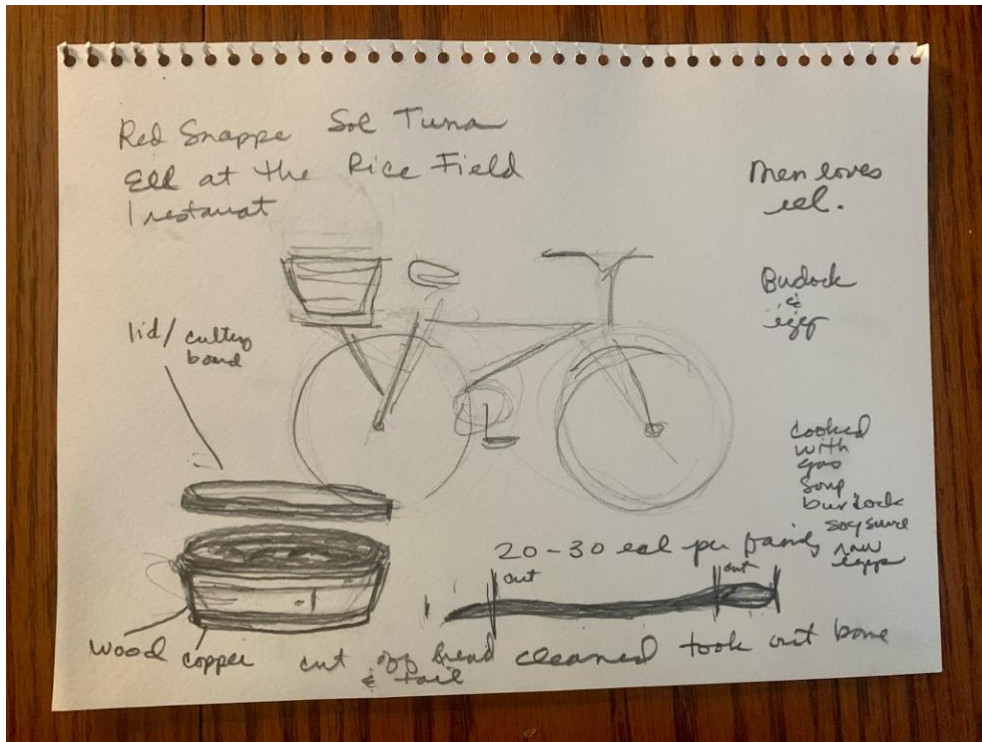 Red Snappe Sol Tuna
Ell at the Rice Field
1 restarat
Men loves
eel.
Budock
&
egg
lid/ cutting
board
cooked
with
gas
Soup
burdock
soy sure
raw
eggs
20-30 eal per family
cut
cut
wood copper
cut off head cleaned took out bone
& tail